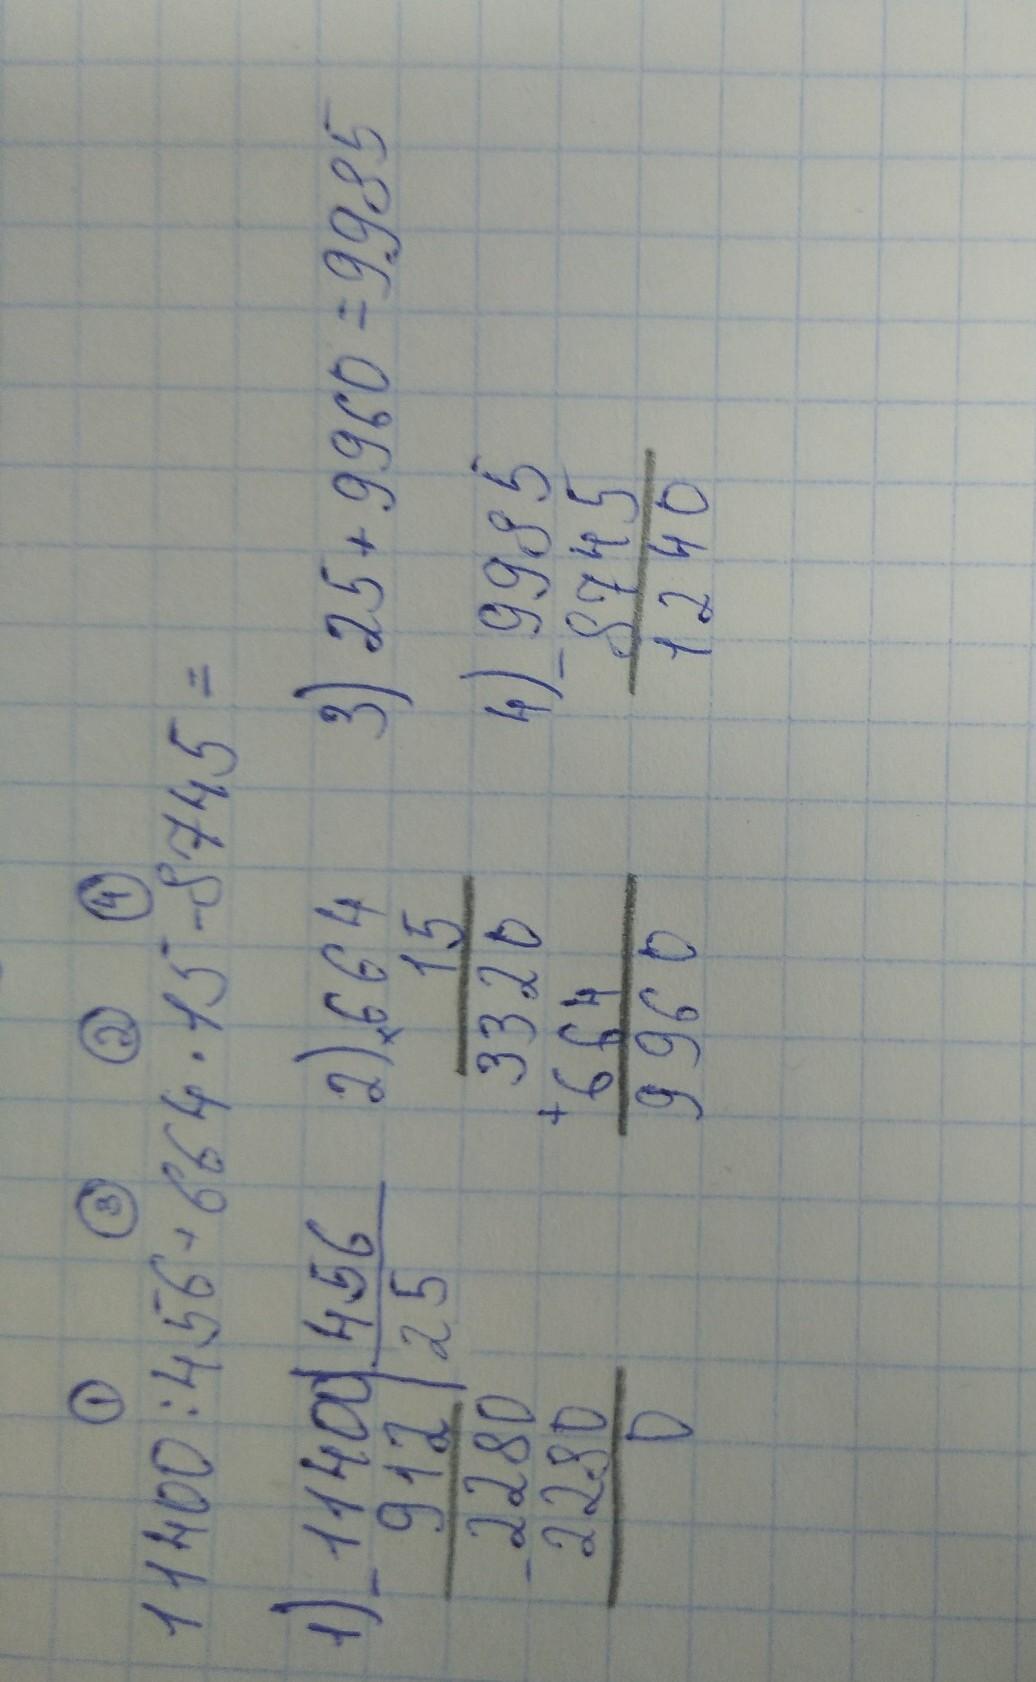 ① ③ ② ④
11400:456+664·15-8745=
1) -11400 | 456
912 | 25
-2280
2280
0
2) ×664
15
3320
+664
9960
3) 25+9960=9985
4) -9985
8745
1240